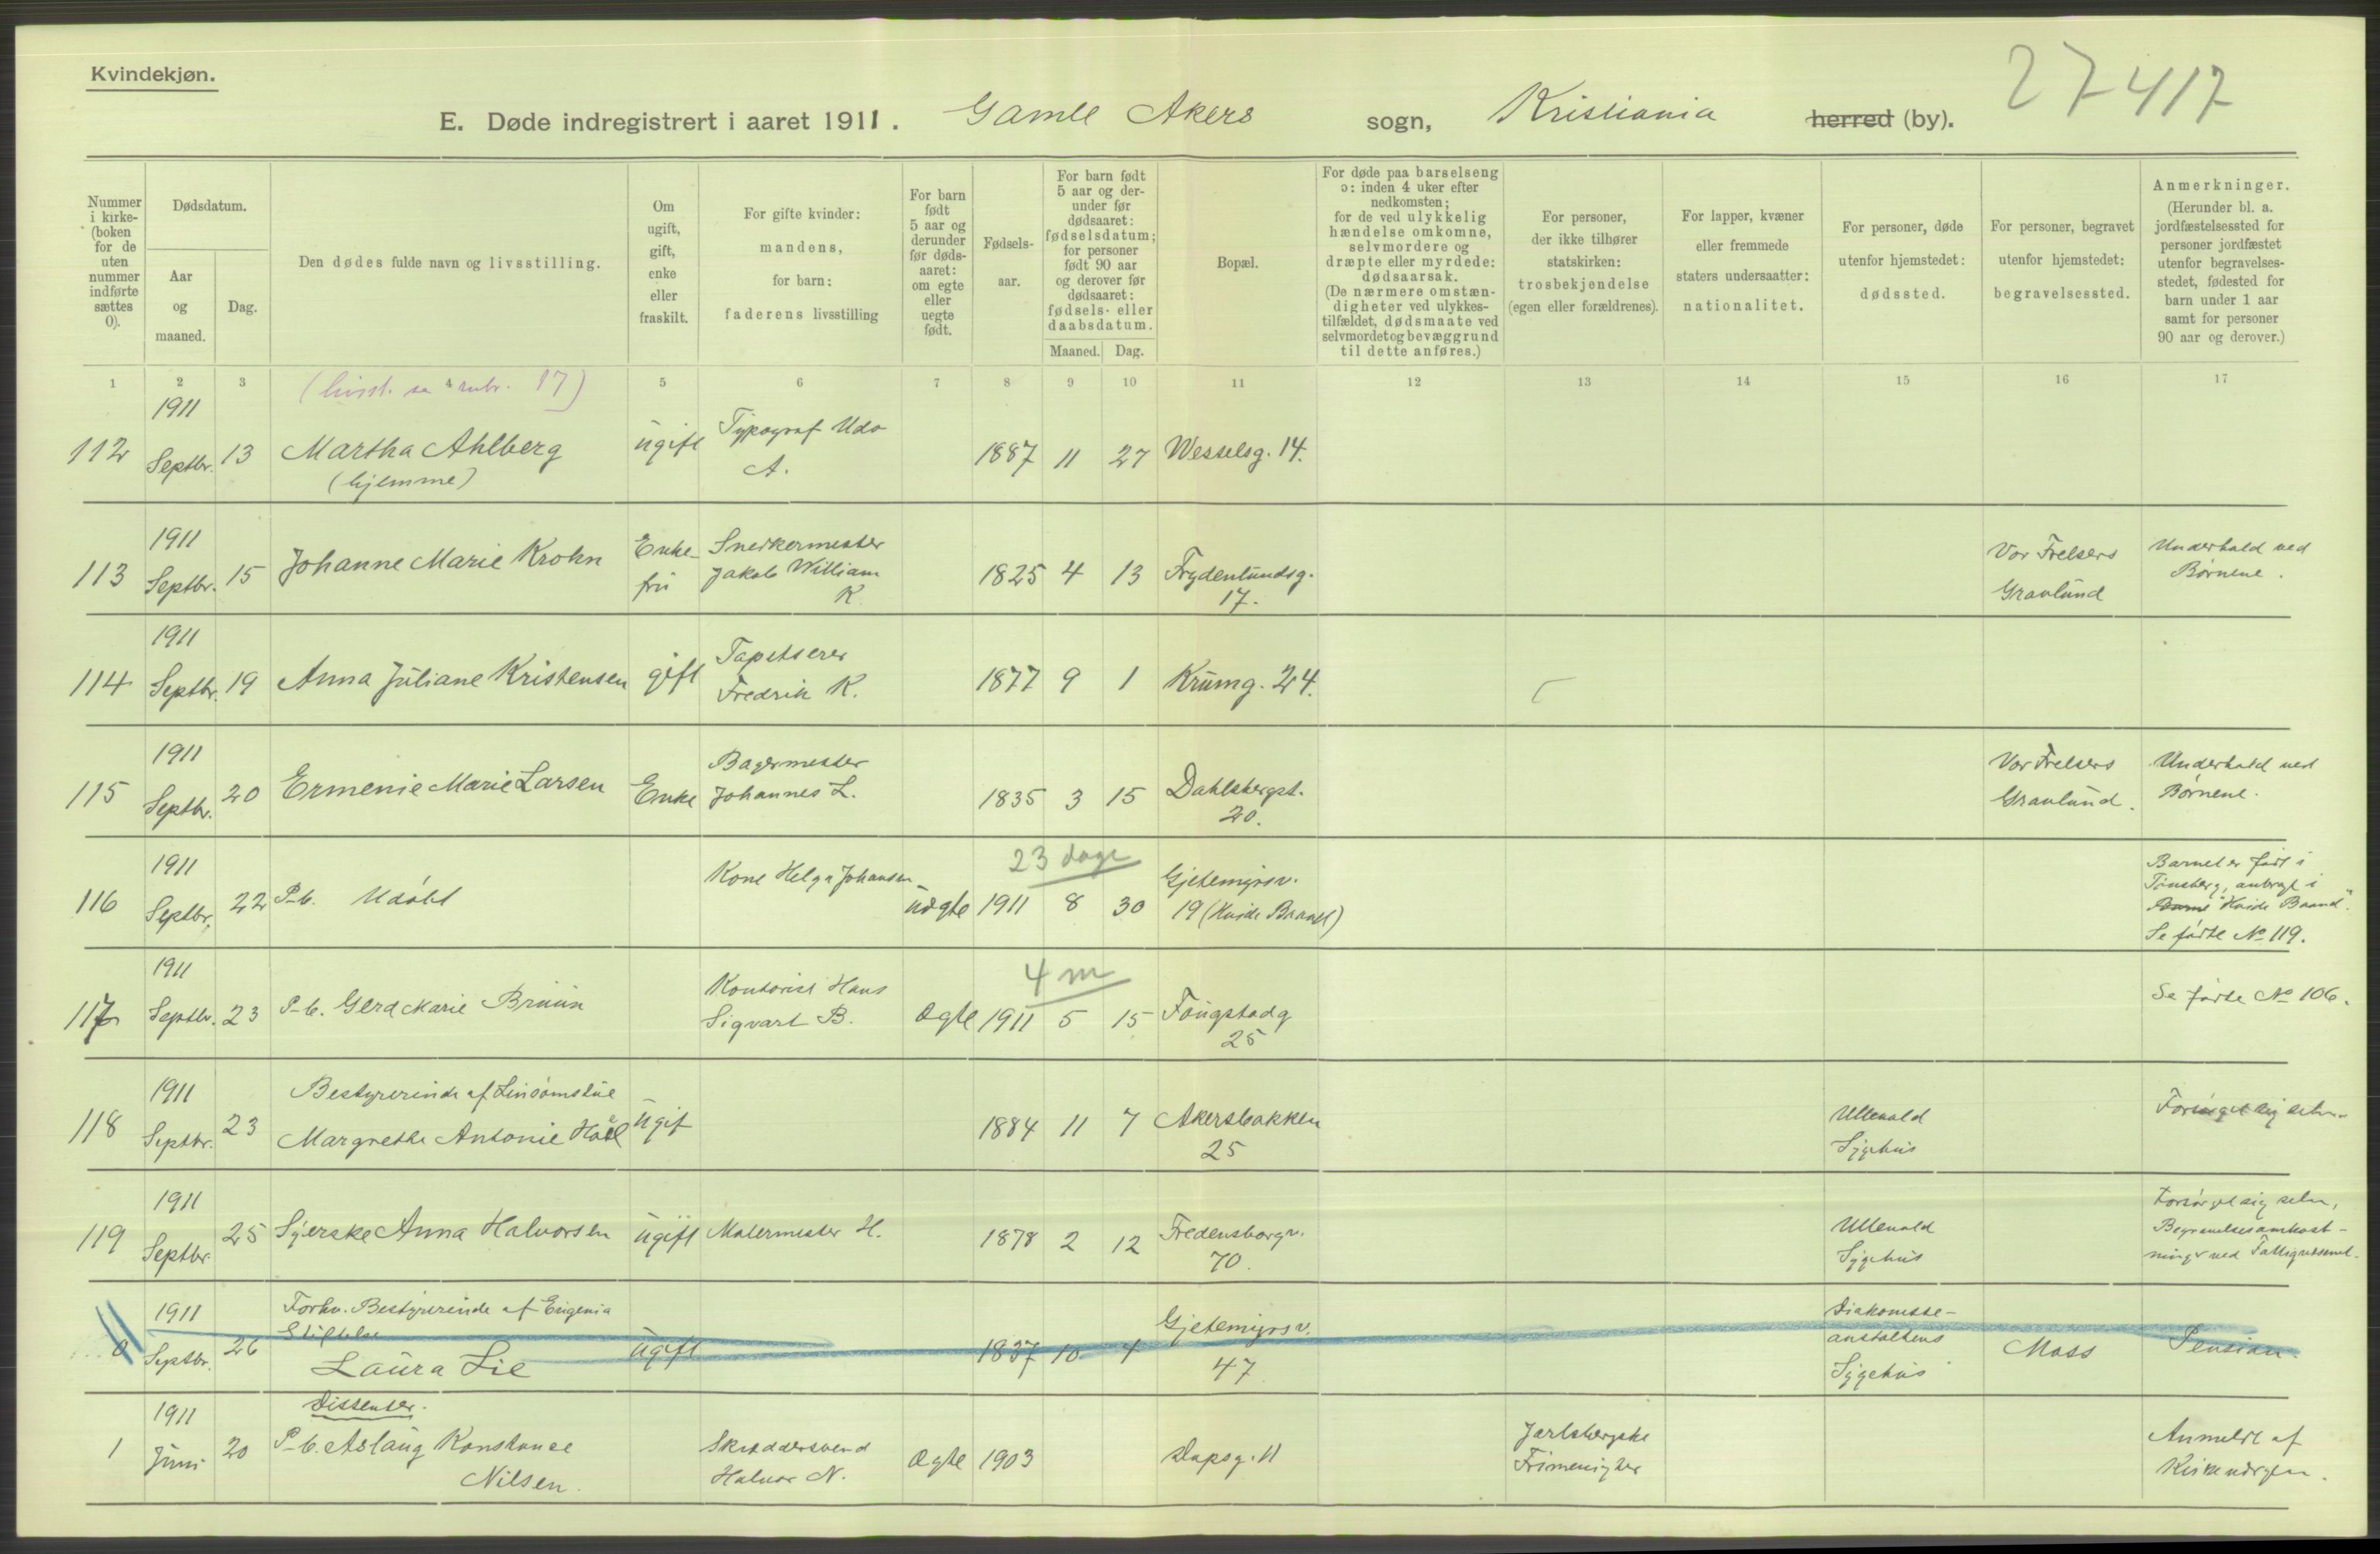 Kvindekjøn.
27417
E. Døde indregistrert i aaret 1911. Gamle Akers sogn, Kristiania herred (by).
Nummer
i kirke-
(boken
for de
uten
nummer
indførte
sættes
0).
Dødsdatum.
Aar
og
maaned.
Dag.
Den dødes fulde navn og livsstilling.
Om
ugift,
gift,
enke
eller
fraskilt.
For gifte kvinder:
mandens,
for barn:
faderens livsstilling
For barn
født
5 aar og
derunder
før døds-
aaret:
om egte
eller
uegte
født.
Fødsels-
aar.
For barn født
5 aar og der-
under før
dødsaaret:
fødselsdatum;
for personer
født 90 aar
og derover før
dødsaaret:
fødsels- eller
daabsdatum.
Maaned. Dag.
Bopæl.
For døde paa barselseng
ɔ: inden 4 uker efter
nedkomsten;
for de ved ulykkelig
hændelse omkomne,
selvmordere og
dræpte eller myrdede:
dødsaarsak.
(De nærmere omstæn-
digheter ved ulykkes-
tilfældet, dødsmaate ved
selvmordet og bevæggrund
til dette anføres.)
For personer,
der ikke tilhører
statskirken:
trosbekjendelse
(egen eller forældrenes).
For lapper, kvæner
eller fremmede
staters undersaatter:
nationalitet.
For personer, døde
utenfor hjemstedet:
dødssted.
For personer, begravet
utenfor hjemstedet:
begravelsessted.
Anmerkninger.
(Herunder bl. a.
jordfæstelsessted for
personer jordfæstet
utenfor begravelses-
stedet, fødested for
barn under 1 aar
samt for personer
90 aar og derover.)
1 2 3 4 5 6 7 8 9 10 11 12 13 14 15 16 17
(livsst. se rubr. 17)
1911
112 Septbr. 13 Martha Ahlberg ugift Typograf Udo 1887 11 27 Wesselsg. 14.
(hjemme) A.
1911
113 Septbr. 15 Johanne Marie Krohn Enke- Snedkermester 1825 4 13 Frydenlundsg. Vor Frelsers Underhold ved
fru Jakob William 17. Gravlund Børnene.
K.
1911
114 Septbr. 19 Anna Juliane Kristensen gift Tapetserer 1877 9 1 Krumg. 24.
Fredrik K.
1911
115 Septbr. 20 Ermenie Marie Larsen Enke Bagermester 1835 3 15 Dahlsbergst. Vor Frelsers Underhold ved
Johannes L. 20. Gravlund. Børnene.
1911 23 dage
116 Septbr. 22 P-b. Udøbt Kone Helga Johansen uægte 1911 8 30 Gjetemyrsv. Barnet er født i
19 (Hvide Baand) Tønsberg, anbragt i
"Hvide Baand".
Se førte No 119.
1911 4 m
117 Septbr. 23 P-b. Gerd Marie Bruun Kontorist Hans Ægte 1911 5 15 Fougstadg Se førte No 106.
Sigvart B. 25
1911 Bestyrerinde af
118 Septbr. 23 Margrethe Antonie ugift 1884 11 7 Akersbakken Ullevaald
25 Sygehus
1911
119 Septbr. 25 Syerske Anna Halvorsen ugift Malermester H. 1878 2 12 Fredensborgv. Ullevaald Forsørget sig selv,
70. Sygehus Begravelsesomkost-
ninger ved Fattigvæsenet.
1911 Forhv. Bestyrerinde af Eugenia
Stiftelse
0 Septbr. 26 Laura Lie ugift 1837 10 4 Gjetemyrsv. Diakonisse- Moss Pension.
47 anstaltens
Sygehus
Dissenter.
1911
1 Juni 20 P-b. Aslaug Konstanse Skræddersvend Ægte 1903 Dapsg. 11 Jarlsbergske Anmeldt af
Nilsen. Halvor N. Frimenigter Kirkeværgen.